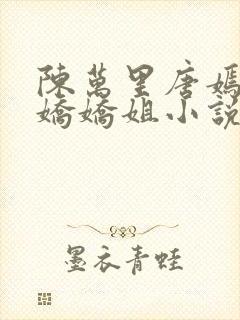 陳萬里唐嫣
嬌嬌姐小説
墨衣青蛙